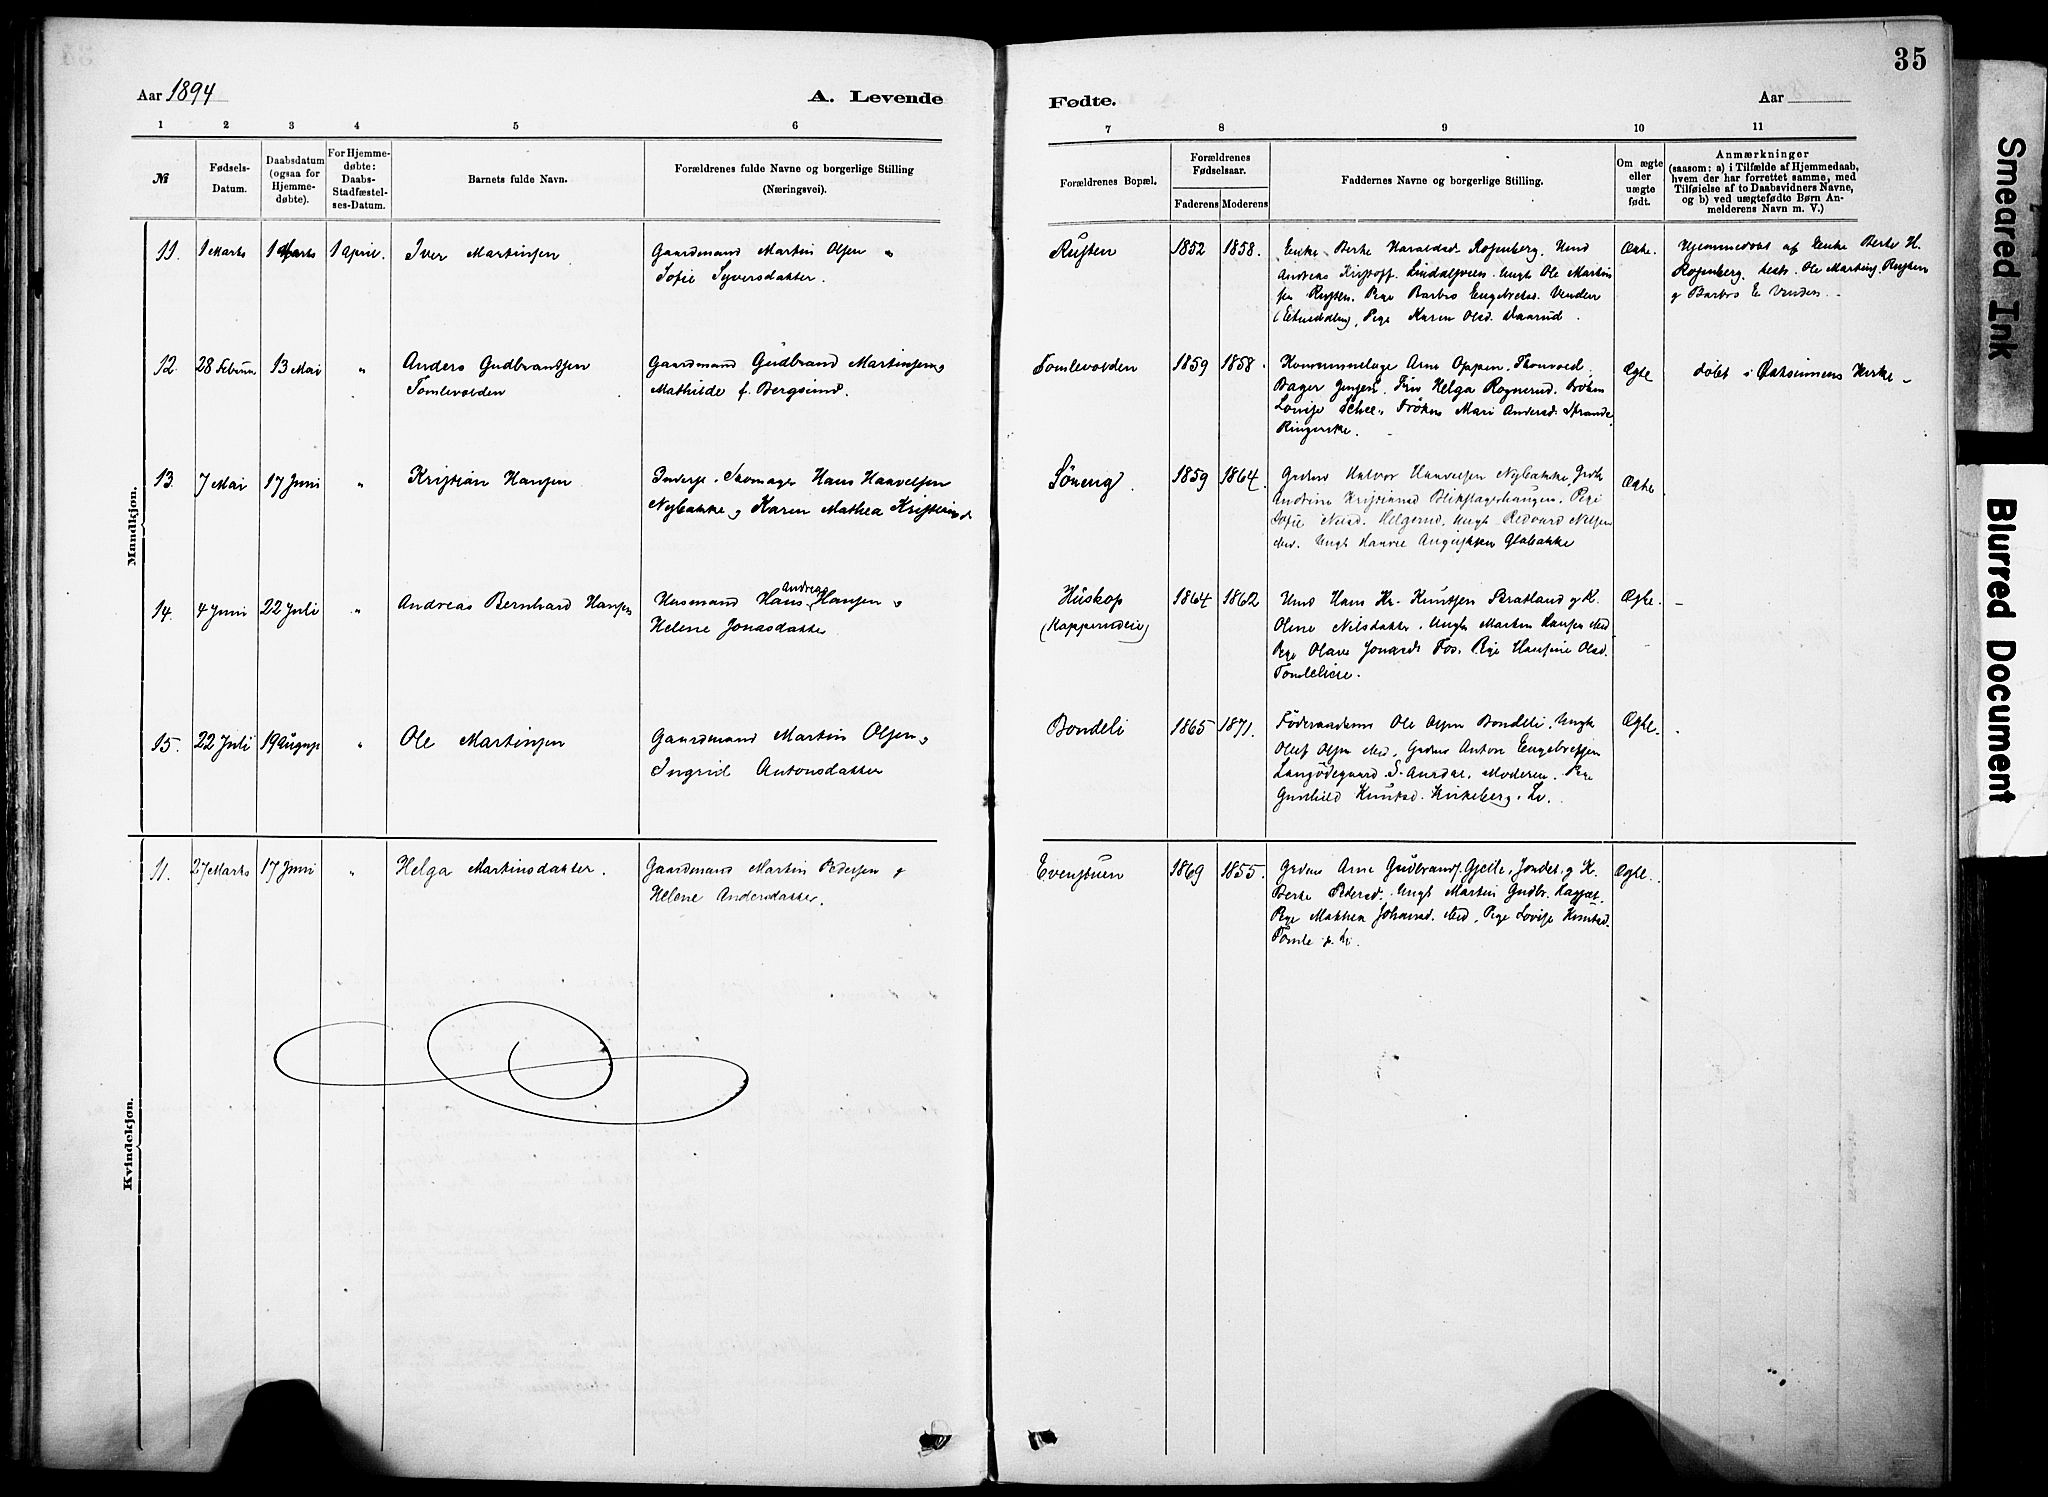 35
Aar 1894
A. Levende
Fødte.
Aar
1 2 3 4 5 6
7 8 9 10 11
№
Fødsels-
Datum.
Daabsdatum
(ogsaa for
Hjemme-
døbte).
For Hjemme-
døbte:
Daabs-
Stadfæstel-
ses-Datum.
Barnets fulde Navn.
Forældrenes fulde Navne og borgerlige Stilling
(Næringsvei).
Forældrenes Bopæl.
Forældrenes
Fødselsaar.
Faderens Moderens
Faddernes Navne og borgerlige Stilling.
Om ægte
eller
uægte
født.
Anmærkninger
(saasom: a) i Tilfælde af Hjemmedaab,
hvem der har forrettet samme, med
Tilføielse af to Daabsvidners Navne,
og b) ved uægtefødte Børn An-
melderens Navn m. V.)
Mandkjøn.
11. 1 Marts 1 Marts 1 April. Iver Martinsen
Gaardmand Martin Olsen
Sofie Syversdatter.
Rusten 1852 1858.
Enke Berte Haraldsd. Rosenberg. Umd
Andreas Ungk Ole Martin
sen Rusten. Pige Barbro Engebretsd. Venden
Pige Karen Olsd. Vaarud.
Ægte.
Hjemmedøbt af Enke Berte H.
Rosenberg. test. Ole Martins. Rusten
g Barbro E Venden.
12. 28 Februar 13 Mai " Anders Gudbrandsen
Tomlevolden
Gaardmand Gudbrand Martinsen
Mathilde f. Bergsund.
Tomlevolden 1859 1858.
Arne Oppen.
Bager Jensen. Frue Helga Rognerud. Frøken
Lovise Schee. Frøken Mari Andersd. Strande
Ringerike.
Ægte
døbt i Kirke -
13. 7 Mai 17 Juni " Kristian Hansen
Inderst. Skomager Hans Haavelsen
Nybakke g Karen Mathea Kristiansd
Sönerig 1859 1864.
Grdmd Halvor Haavelsen Nybakke, Grdk
Andrine Kristiansd Blikslagerhaugen. Pige
Sofie Nilsd. Helgerud, Ungk Redvard Nilsen
Ungk Haavel Augustsen Glabakke
Ægte.
14. 4 Juni 22 Juli " Andreas Bernhard Hansen
Husmand Hans Andreas Hansen g
Helene Jonasdatter
Huskop
1864 1862
Umd Hans Kr. Knutsen Bratland g K.
Oline Nilsdatter. Ungk Martin Hansen
Pige Olave Jonasd. Fos. Pige Hansine Olsd.
Ægte. -
15. 22 Juli 19 August " Ole Martinsen
Gaardmand Martin Olsen g
Ingrid Antonsdatter
Bondeli 1865 1871.
Föderaadsmd Ole Olsen Bondeli. Ungk
Oluf Olsen Grdmd Anton Engebretsen
Langödegaard S. Aurdal. Moderen. Pige
Gunhild Knutsd. Kirkeberg. Li.
Ægte.
Kvindekjøn.
11. 27 Marts 17 Juni " Helga Martinsdatter.
Gaardmand Martin Pedersen g
Helene Andersdatter.
Evensbuen 1869 1855.
Grdmd Arne Gudbrands. Gjeile, g K.
Berte Pedersd. Ungk Martin Gudbr.
Pige Mathea Johansd. Pige Lovise Knutsd.
Tomle
Ægte.
Smeared Ink
Blurred Document